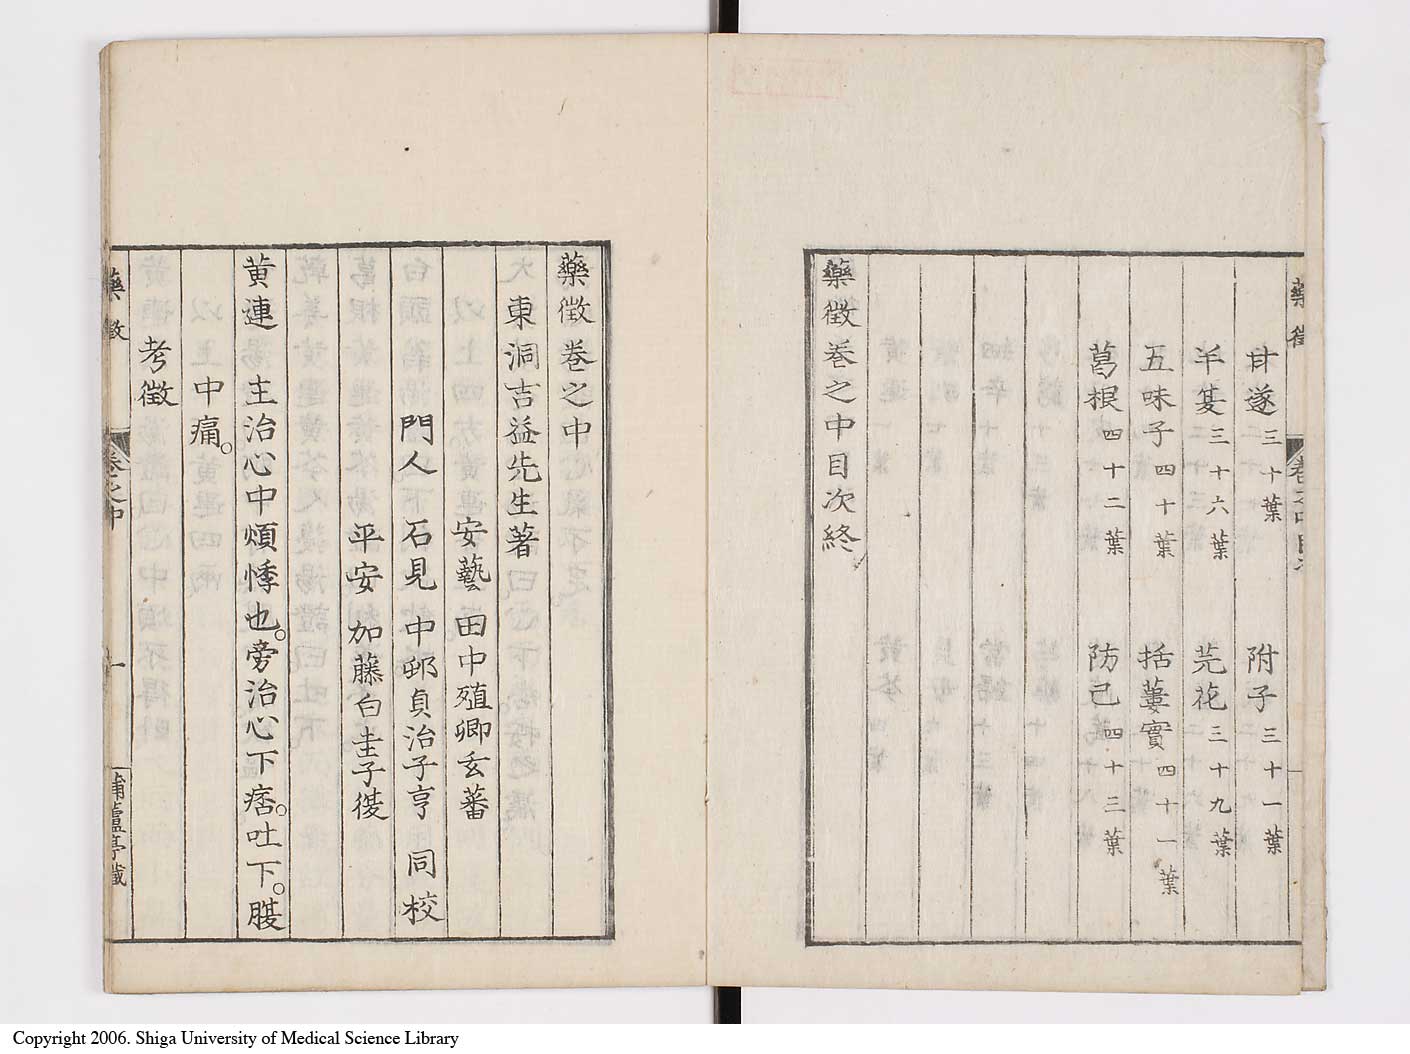 甘遂三十葉 附子三十一葉
芊䒷三十六葉 芫花三十九葉
五味子四十葉 括蔞實四十一葉
葛根四十二葉 防己四十三葉
藥徵卷之中目次終
藥徵卷之中
大東洞吉益先生著
安藝 田中殖卿玄蕃
門人 石見 中邨貞治子亨 同校
平安 加藤白圭子復
黃連 主治心中煩悸也。旁治心下痞。吐下。腹
中痛。
考徵
藥徵 卷之中 一 蒲蘆亭藏
Copyright 2006. Shiga University of Medical Science Library